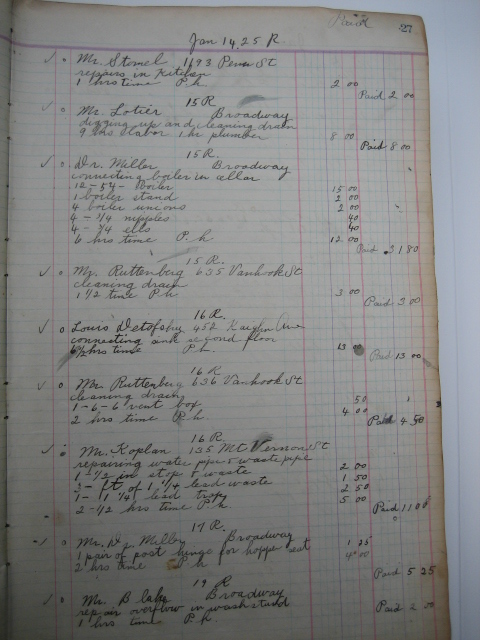 Paid 27
Jan 14, 25 R
Mr. Stomel 1193 Penn St
repairs in kitchen
1 hrs time P.h. 2 00
Paid 2 00
15 R
Mr. Lotier Broadway
digging up and cleaning drain
9 hrs labor 1 hr plumber 8 00
Paid 8 00
15 R.
Dr. Miller Broadway
connecting boiler in cellar
12-54- Boiler 15 00
1 boiler stand 2 00
4 boiler unions 2 00
4 - 3/4 nipples 40
4 - 3/4 ells 40
6 hrs time P.h 12 00
Paid 31 80
15 R.
Mr. Ruttenberg 635 Vanhook St
cleaning drain
1 1/2 time P.h 3 00
Paid 3 00
16 R.
Louis 452 Kaighn Ave
connecting sink second floor
6 1/2 hrs time P.h. 13 00
Paid 13 00
16 R
Mr. Ruttenberg 636 Vanhook St
cleaning drain
1-6-6 vent box 50
2 hrs time P.h 4 00
Paid 4 50
16 R.
Mr. Koplan 135 Mt Vernon St
repairing water pipe & waste pipe
1 - 1/2 in stop & waste 2 00
3 - ft of 1 1/4 lead waste 1 50
1 - 1 1/4 lead trap 2 50
2 - 1/2 hrs time P.h 5 00
Paid 11 00
17 R.
Mr. Dr. Broadway
1 pair of post hinge for hopper seat 1 25
2 hrs time P.h 4 00
Paid 5 25
19 R
Mr. Blake Broadway
repair overflow in washstand
1 hrs time P.h. Paid 2 00